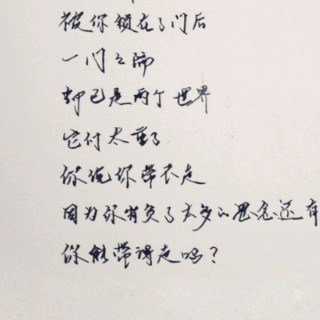 被你锁在了门后
一门之隔
却已是两个世界
它们太重了
你说你带不走
因为你背负了太多的思念还有
你能带得走吗？